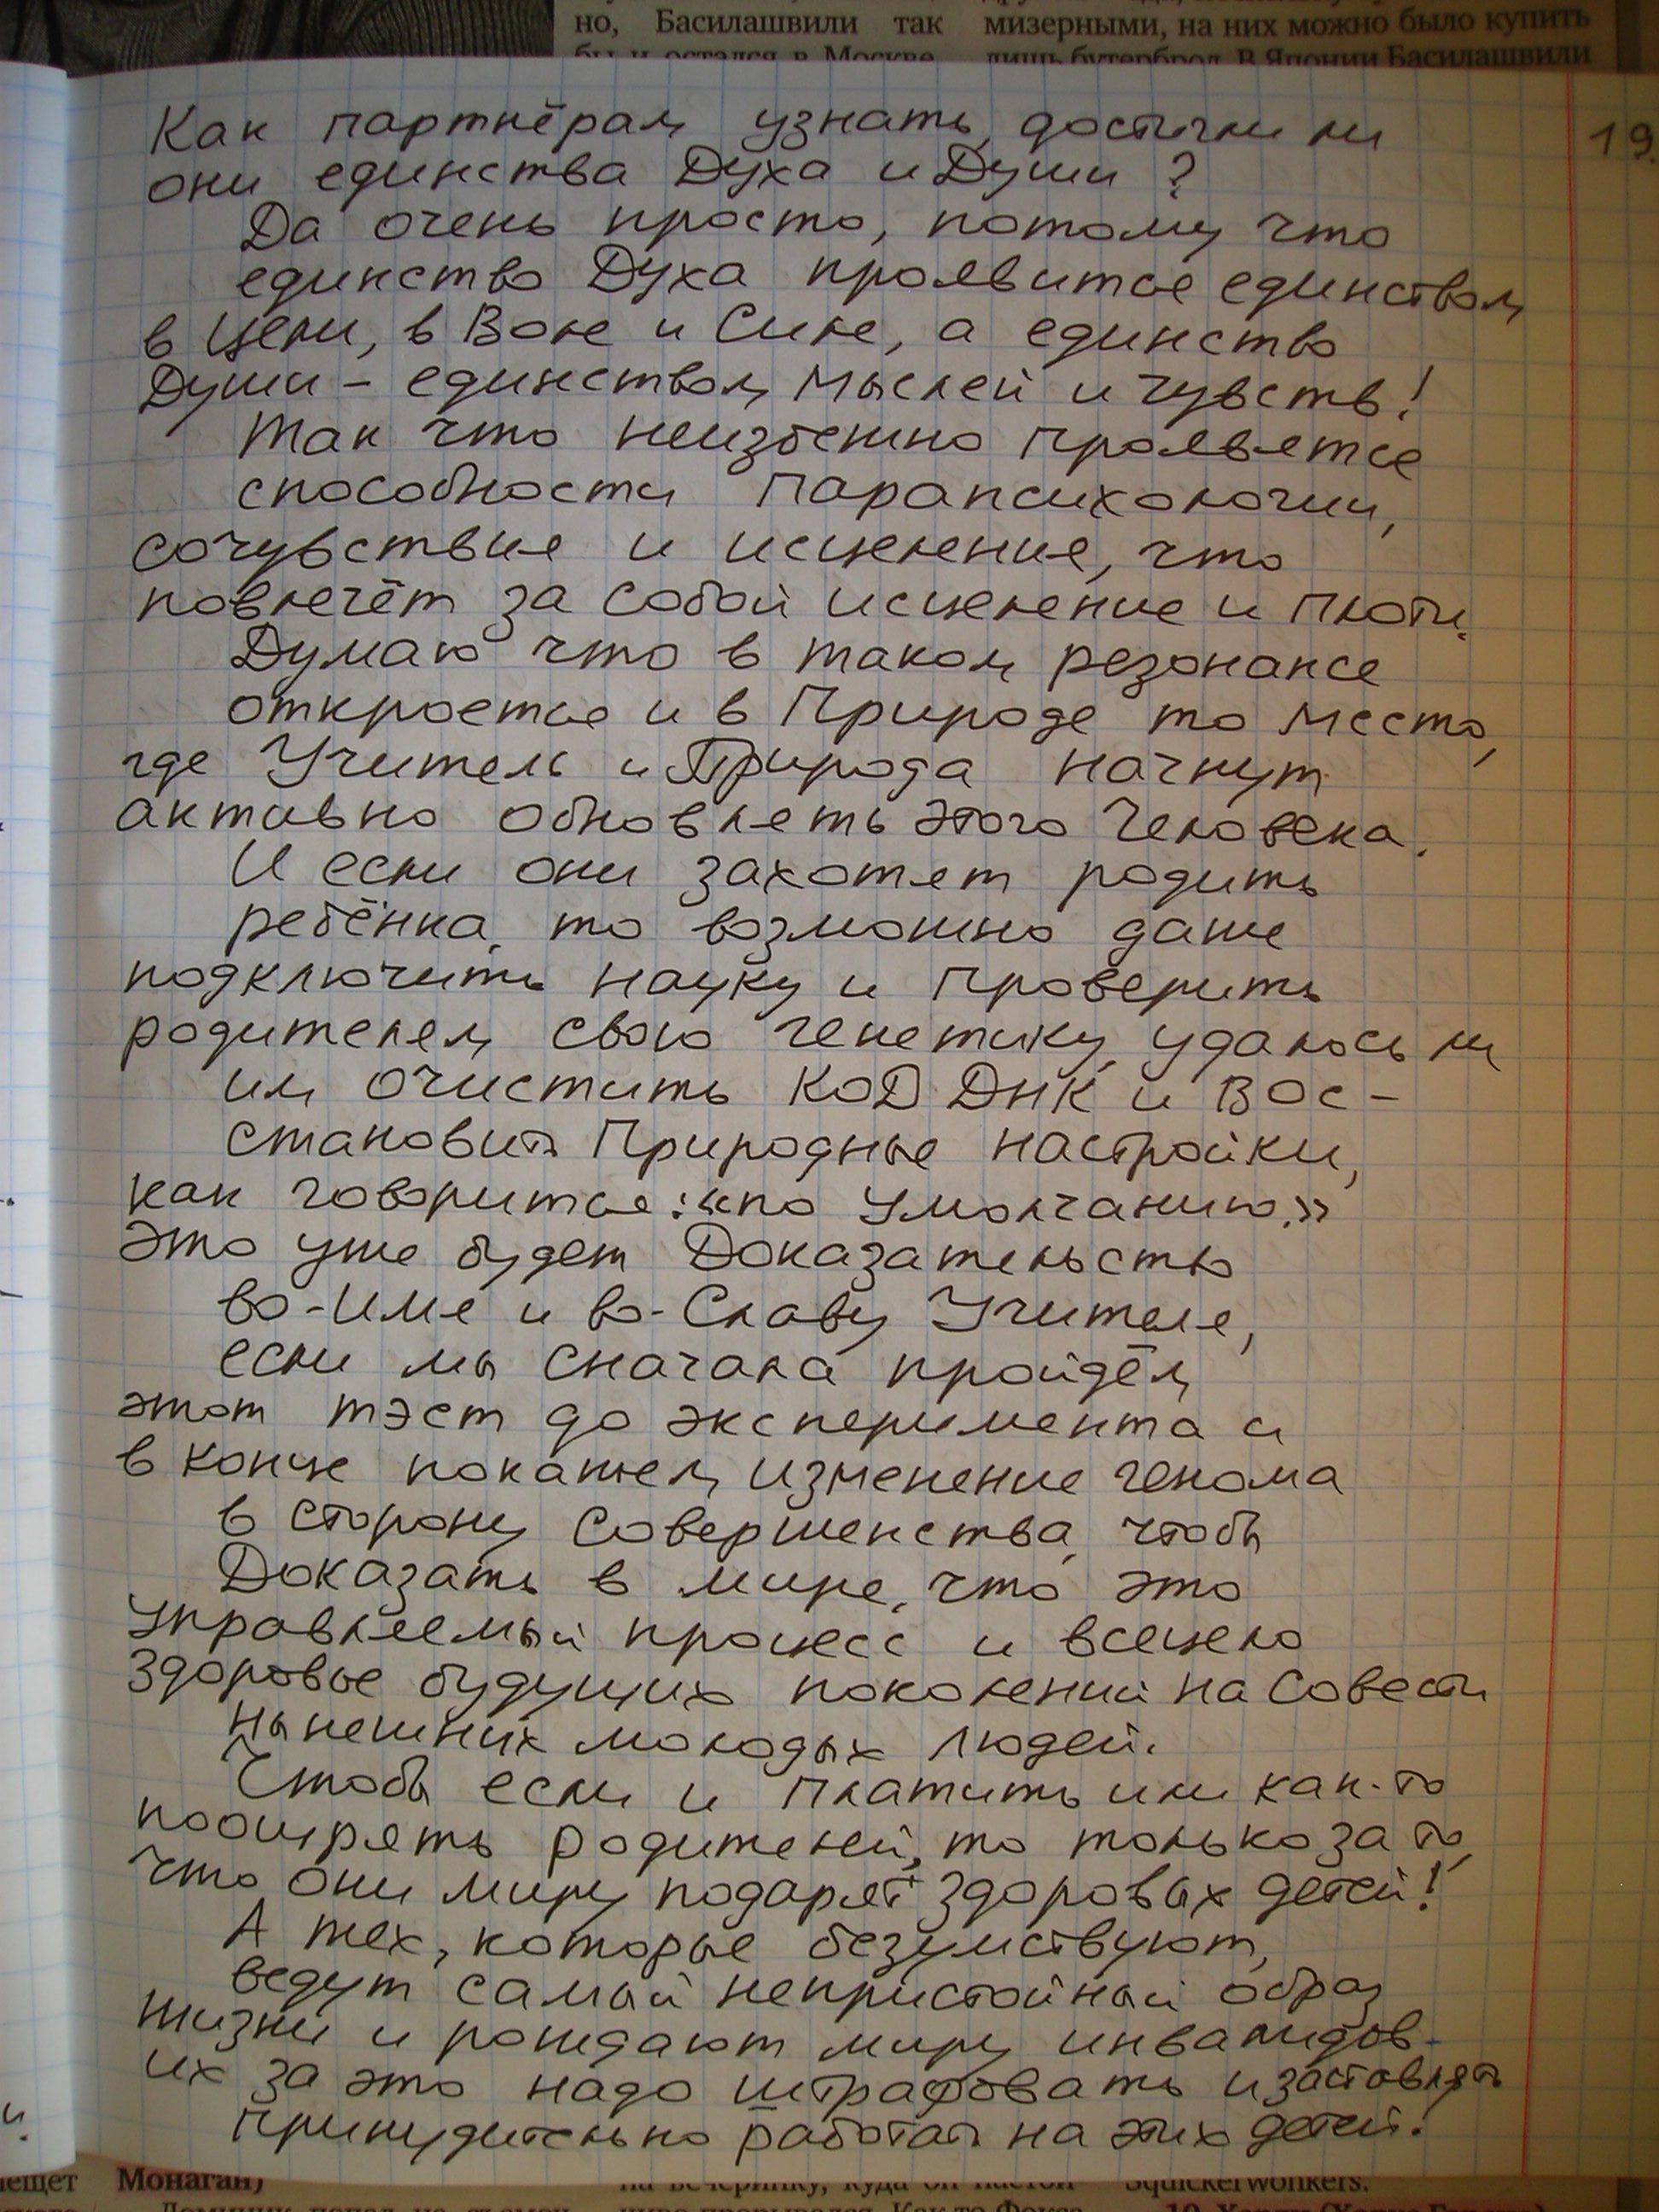 но, Басилашвили так
мизерными, на них можно было купить
бы и остался в Москве
лишь бутерброд. В Японии Басилашвили
19.
Как партнёрам узнать, достигли ли
они единства Духа и Души?
Да очень просто, потому что
единство Духа проявится единством
в Цели, в Воле и Силе, а единство
Души - единством мыслей и чувств!
Так что неизбежно проявятся
способности парапсихологии,
сочувствие и исцеление, что
повлечёт за собой исцеление и плоти.
Думаю что в таком резонансе
откроется и в Природе то место,
где Учитель и Природа начнут
активно обновлять этого Человека.
И если они захотят родить
ребёнка, то возможно даже
подключить науку и проверить
родителям свою генетику, удалось ли
им очистить КОД ДНК и Вос-
становить Природные настройки,
как говорится: «по умолчанию.»
Это уже будет Доказательство
во-Имя и во-Славу Учителя,
если мы сначала пройдём
этот тэст до эксперимента и
в конце покажем изменение генома
в сторону Совершенства, чтобы
Доказать в мире, что это
управляемый процесс и всецело
здоровье будущих поколений на Совести
нынешних молодых людей.
Чтобы если и платить или как-то
поощрять родителей, то только за то,
что они миру подарят здоровых детей!
А тех, которые безумствуют,
ведут самый непристойный образ
жизни и рождают миру инвалидов-
их за это надо штрафовать и заставлять
принудительно работать на этих детей!
Монаган)
на вечеринку, куда он настой
Squickerwonkers.